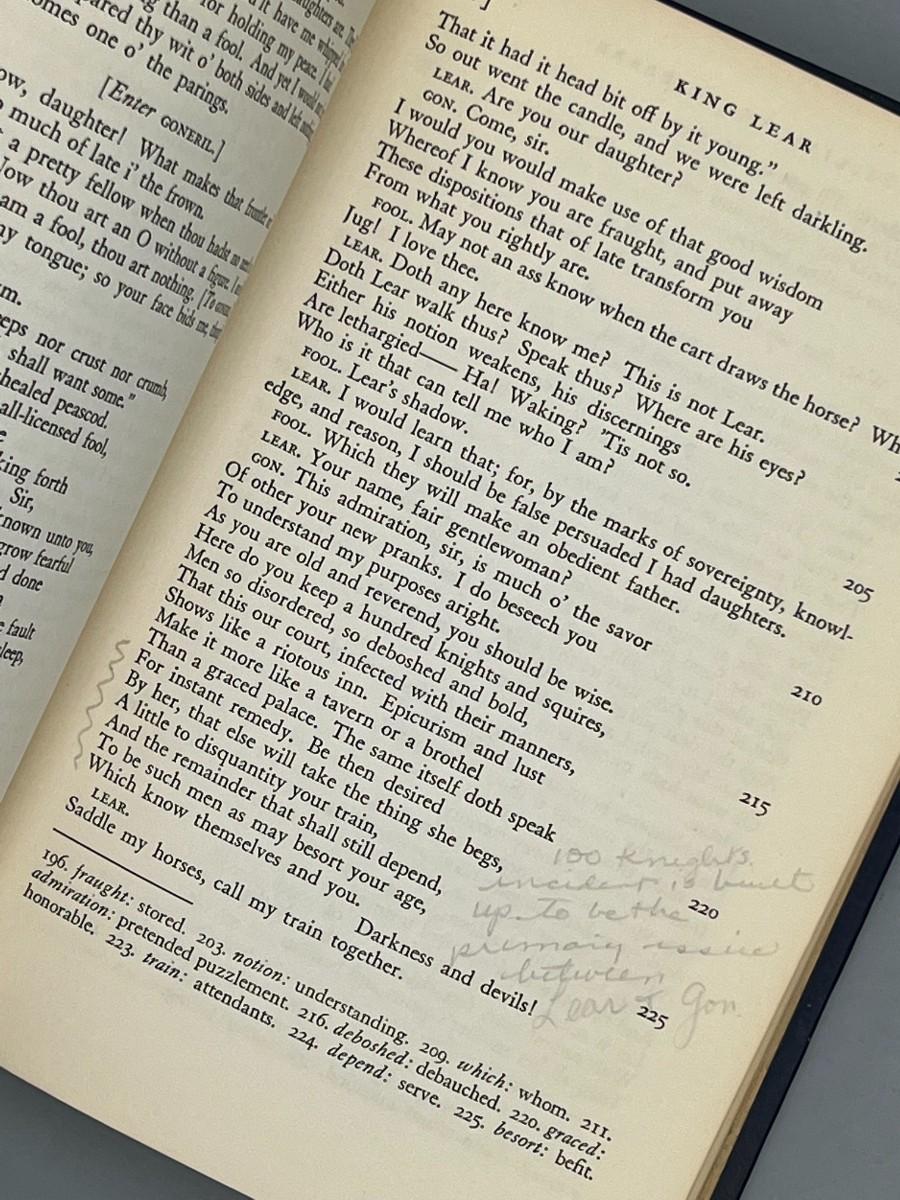 ughters are. The
it have me whipped
for holding my peace. I had
g than a fool. And yet I would
pared thy wit o' both sides and left
omes one o' the parings.
[Enter GONERIL.]
ow, daughter! What makes that
o much of late i' the frown.
a pretty fellow when thou hadst no
Now thou art an O without a figure. I
am a fool, thou art nothing. [To
ny tongue; so your face bids me,
m.
eeps nor crust nor crumb,
shall want some.”
healed peascod.
all-licensed fool,
king forth
Sir,
known unto you,
grow fearful
d done
e fault
leep,
]
KING LEAR
That it had it head bit off by it young.”
So out went the candle, and we were left darkling.
LEAR. Are you our daughter?
GON. Come, sir.
I would you would make use of that good wisdom
Whereof I know you are fraught, and put away
These dispositions that of late transform you
From what you rightly are.
FOOL. May not an ass know when the cart draws the horse? Wh
Jug! I love thee.
LEAR. Doth any here know me? This is not Lear.
Doth Lear walk thus? Speak thus? Where are his eyes?
Either his notion weakens, his discernings
Are lethargied—— Ha! Waking? 'Tis not so.
Who is it that can tell me who I am?
FOOL. Lear's shadow. 205
LEAR. I would learn that; for, by the marks of sovereignty, knowl-
edge, and reason, I should be false persuaded I had daughters.
FOOL. Which they will make an obedient father.
LEAR. Your name, fair gentlewoman? 210
GON. This admiration, sir, is much o' the savor
Of other your new pranks. I do beseech you
To understand my purposes aright.
As you are old and reverend, you should be wise.
Here do you keep a hundred knights and squires, 215
Men so disordered, so deboshed and bold,
That this our court, infected with their manners,
Shows like a riotous inn. Epicurism and lust
Make it more like a tavern or a brothel
Than a graced palace. The same itself doth speak 220
For instant remedy. Be then desired
By her, that else will take the thing she begs,
A little to disquantity your train,
And the remainder that shall still depend,
To be such men as may besort your age, 225
Which know themselves and you.
LEAR. Darkness and devils!
Saddle my horses, call my train together.
100 Knights
incident is built
up to be the
primary issue
between
Lear & Gon.
196. fraught: stored. 203. notion: understanding. 209. which: whom. 211.
admiration: pretended puzzlement. 216. deboshed: debauched. 220. graced:
honorable. 223. train: attendants. 224. depend: serve. 225. besort: befit.